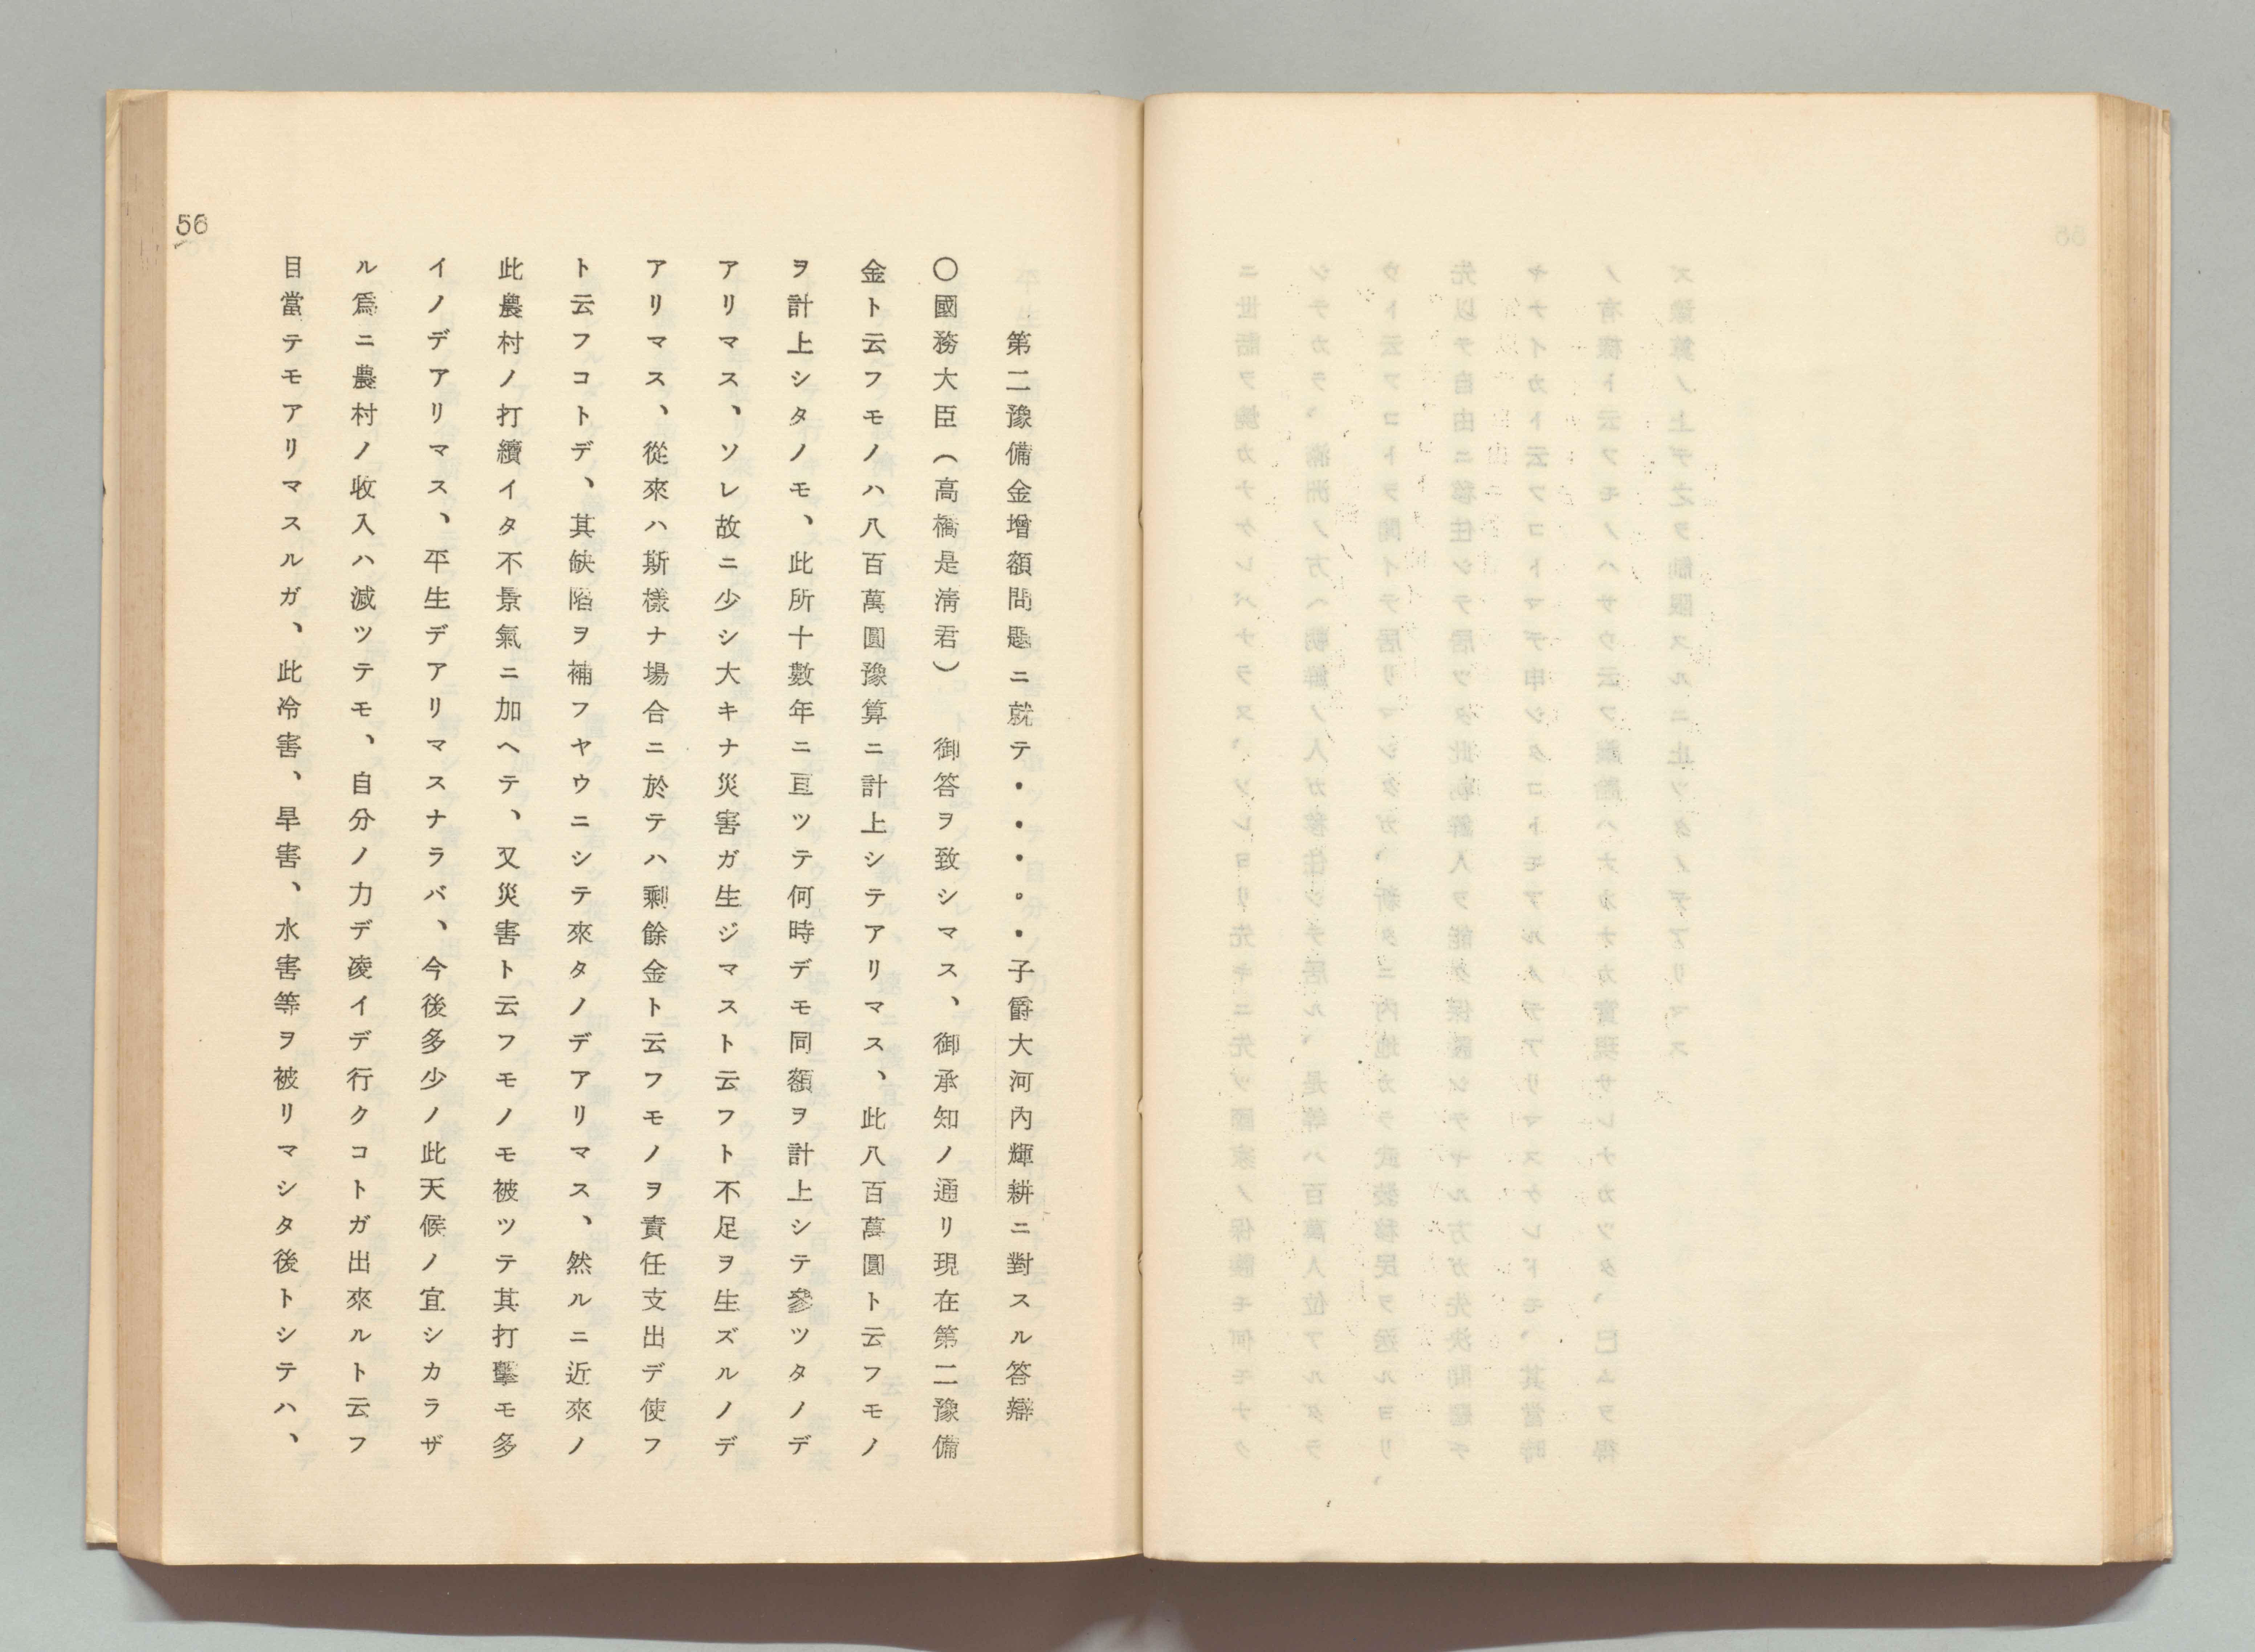 第二豫備金增額問題ニ就テ・・・。・子爵大河內輝耕ニ對スル答辯
〇國務大臣(高橋是淸君)　御答ヲ致シマス、御承知ノ通リ現在第二豫備
金ト云フモノハ八百萬圓豫算ニ計上シテアリマス、此八百萬圓ト云フモノ
ヲ計上シタノモ、此所十數年ニ亘ツテ何時デモ同額ヲ計上シテ參ツタノデ
アリマス、ソレ故ニ少シ大キナ災害ガ生ジマスト云フト不足ヲ生ズルノデ
アリマス、從來ハ斯樣ナ場合ニ於テハ剩餘金ト云フモノヲ責任支出デ使フ
ト云フコトデ、其缺陷ヲ補フヤウニシテ來タノデアリマス、然ルニ近來ノ
此農村ノ打續イタ不景氣ニ加ヘテ、又災害ト云フモノモ被ツテ其打擊モ多
イノデアリマス、平生デアリマスナラバ、今後多少ノ此天候ノ宜シカラザ
ル爲ニ農村ノ收入ハ減ツテモ、自分ノ力デ凌イデ行クコトガ出來ルト云フ
目當テモアリマスルガ、此冷害、旱害、水害等ヲ被リマシタ後トシテハ、
56